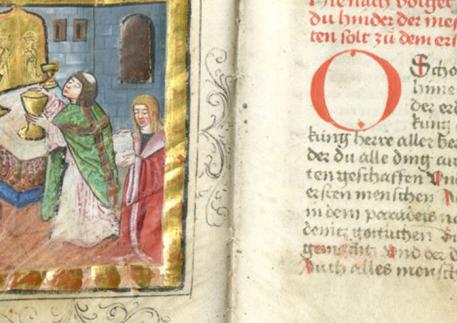 Hienach volget
du hinder der mes
ten solt zů dem ers
O Scho
hime
der erd
kung
kung herre aller
der du alle ding
ten geschaffen Vnd
ersten menschen
in dem paradeis
gottlichen
gemacht Vnd der d
Auch alles mensch